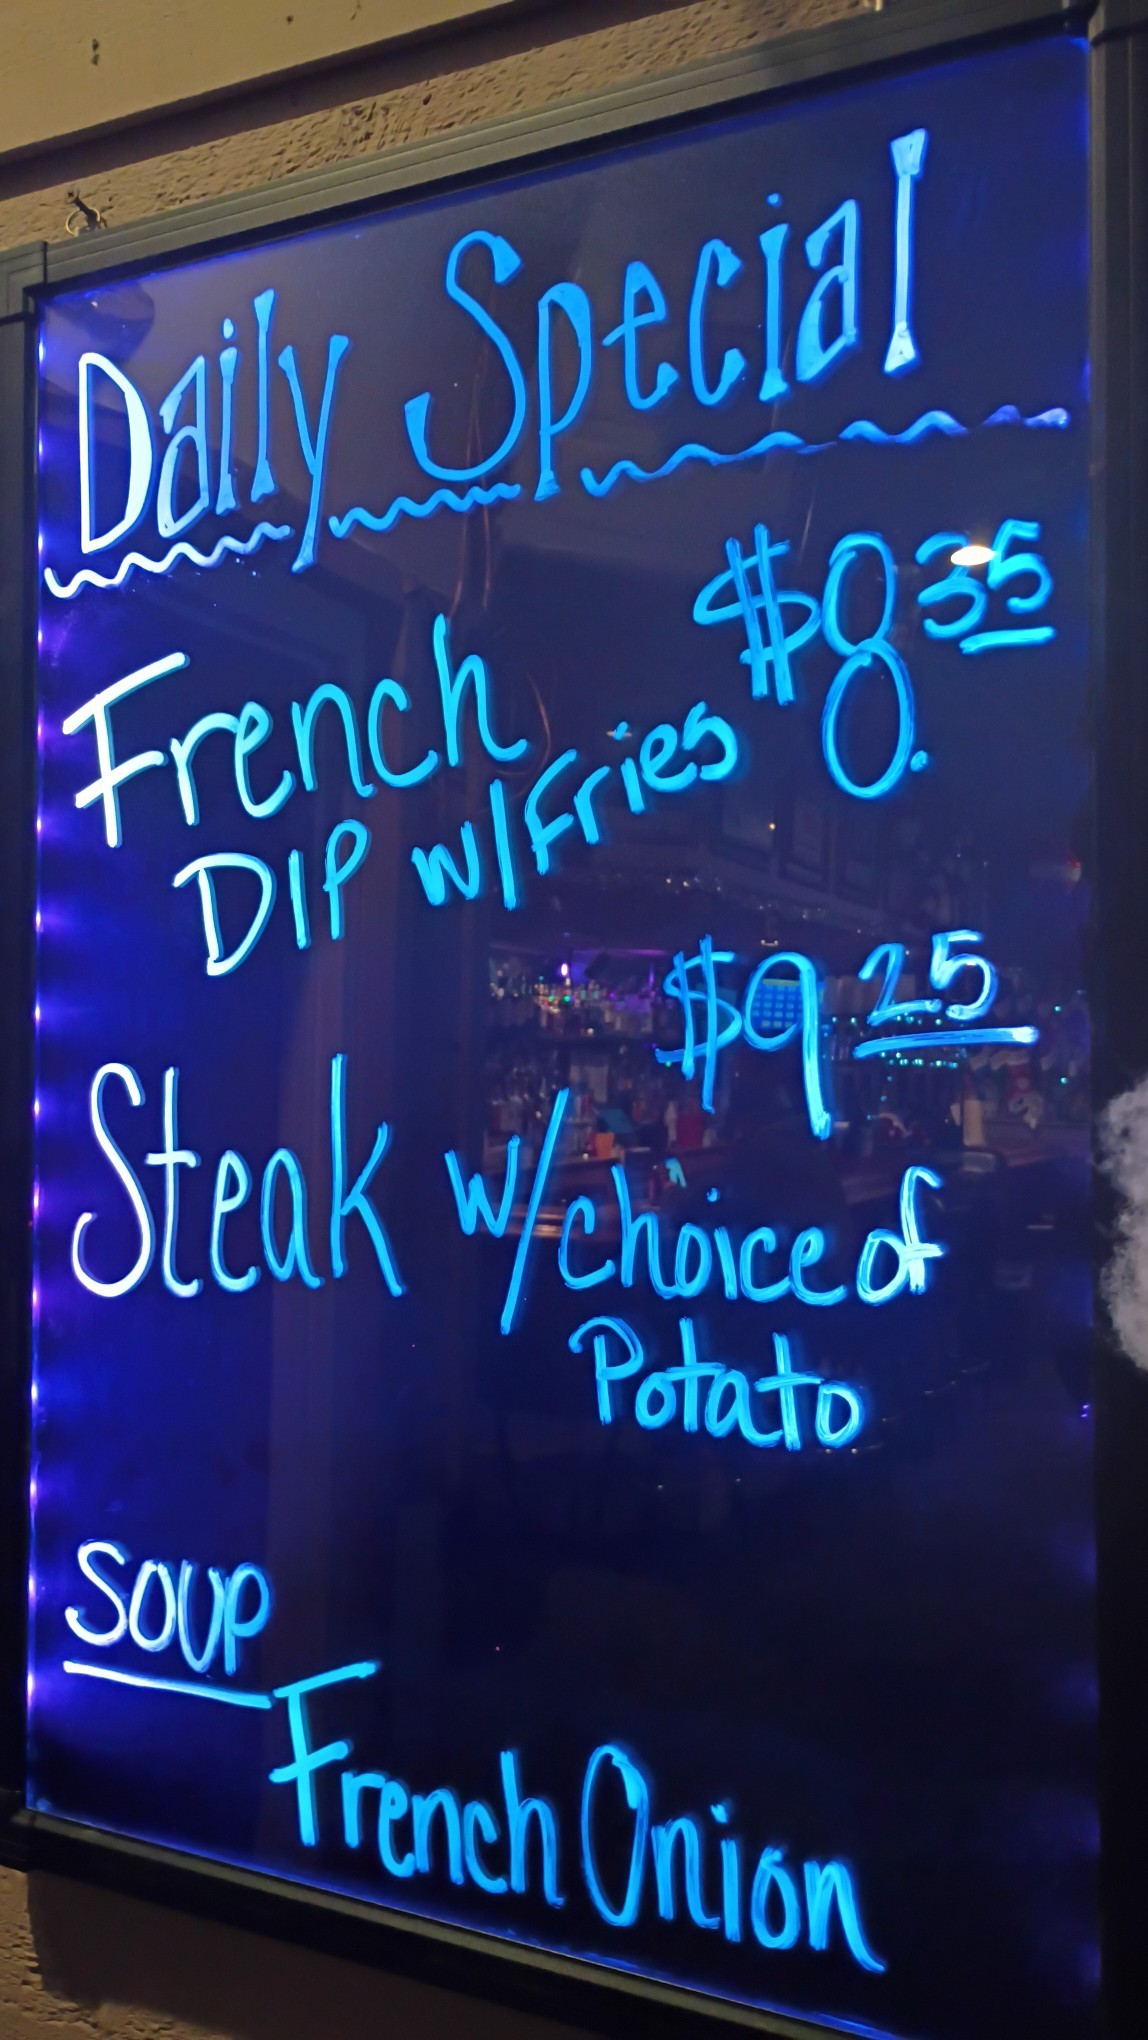 Daily Special
$8.35
French
DIP w/Fries
$9 25
Steak w/choice of
Potato
SOUP
French Onion